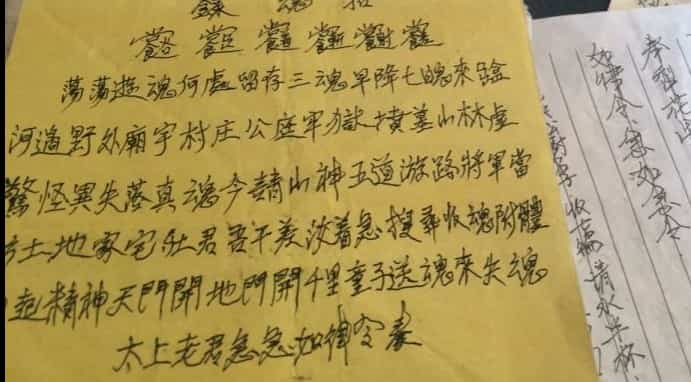 魂
蕩蕩遊魂何處留存三魂早降七魄來臨
河邊野外廟宇村庄公庭牢獄墳墓山林虛
驚怪異失落真魂今請山神五道游路將軍當
方土地家宅灶君吾干差汝着急搜尋收魂附體
起精神天門開地門開千里童子送魂來失魂
太上老君急急如律令奉
如律令急如奉令
清水半杯